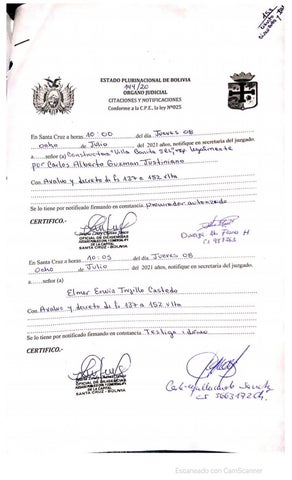 ESTADO PLURINACIONAL DE BOLIVIA
144/20
ORGANO JUDICIAL
CITACIONES Y NOTIFICACIONES
Conforme a la C.P.E., la ley N°025
En Santa Cruz a horas 10:00 del día Jueves 08
ocho de Julio del 2021 años, notifique en secretaria del juzgado.
a señor (a) Constructora "Villa Bonita SRL", rep. legalmente
por Carlos Alberto Guzman Justiniano
Con Avaluo y decreto de fs 137 a 152 vlta
Se lo tiene por notificado firmando en constancia procurador autorizado
CERTIFICO.-
OFICIAL DE DILIGENCIAS
DE LA CAPITAL
SANTA CRUZ - BOLIVIA
En Santa Cruz a horas 10:05 del día Jueves 08
ocho de Julio del 2021 años, notifique en secretaria del juzgado.
a señor (a)
Elmer Erwin Trujillo Castedo
Con Avaluo y decreto de fs 137 a 152 vlta
Se lo tiene por notificado firmando en constancia Testigo idoneo
CERTIFICO.-
OFICIAL DE DILIGENCIAS
DE LA CAPITAL
SANTA CRUZ - BOLIVIA
Escaneado con CamScanner